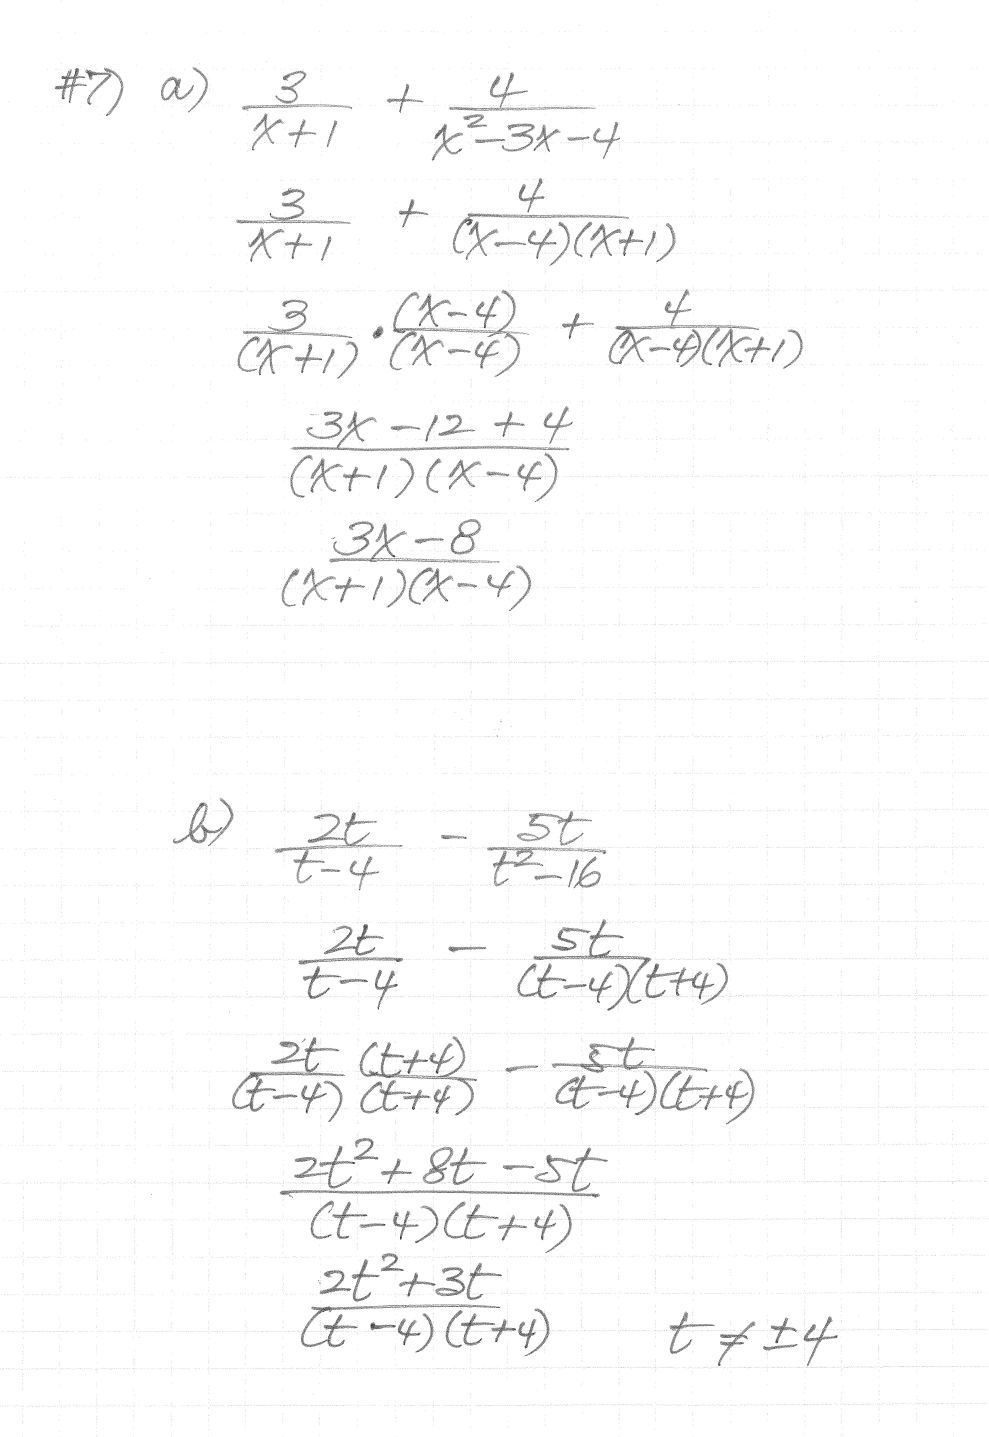 #7) a) 3/(x+1) + 4/(x²-3x-4)
3/(x+1) + 4/((x-4)(x+1))
3/(x+1) · (x-4)/(x-4) + 4/((x-4)(x+1))
(3x-12+4)/((x+1)(x-4))
(3x-8)/((x+1)(x-4))
b) 2t/(t-4) - 5t/(t²-16)
2t/(t-4) - 5t/((t-4)(t+4))
2t/(t-4) (t+4)/(t+4) - 5t/((t-4)(t+4))
(2t²+8t-5t)/((t-4)(t+4))
(2t²+3t)/((t-4)(t+4)) t ≠ ±4